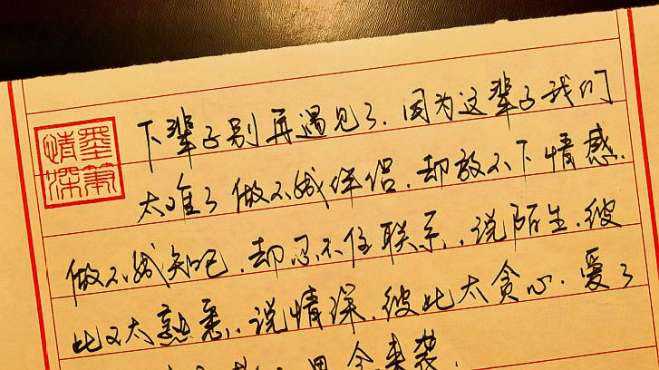 墨筆情深
下辈子别再遇见了.因为这辈子我们
太难了做不成伴侣.却放不下情感.
做不成知己,却忍不住联系,说陌生.彼
此又太熟悉,说情深.彼此太贪心.爱了
来袭.